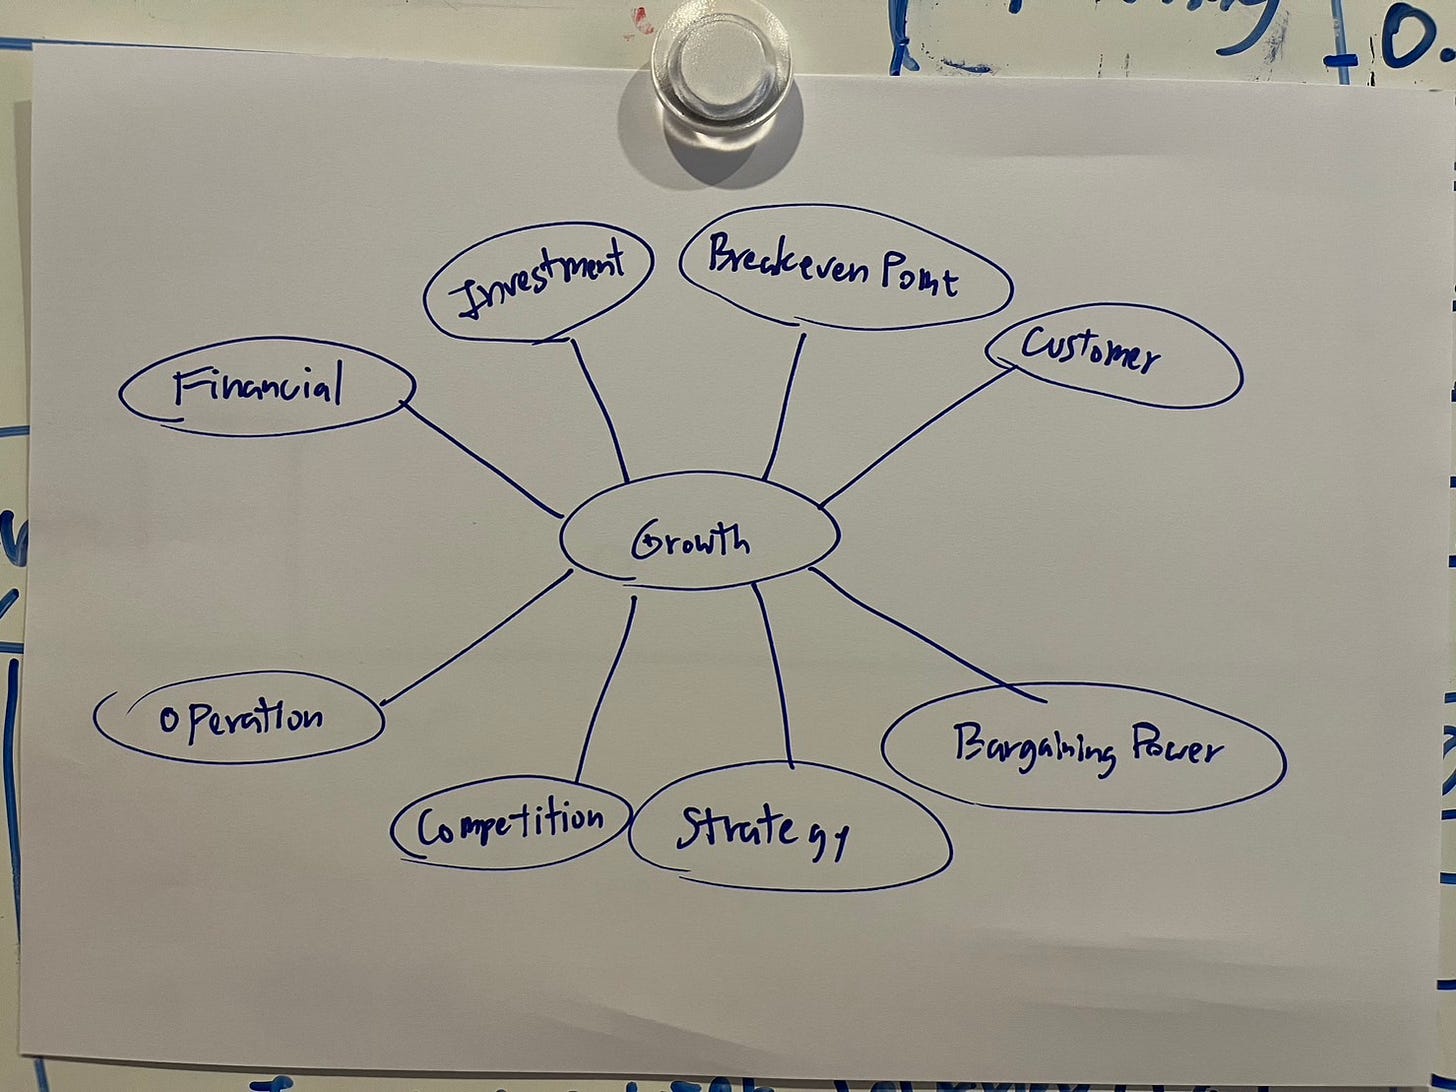 Investment
Breakeven Point
Customer
Financial
Growth
Operation
Bargaining Power
Competition
Strategy
0.